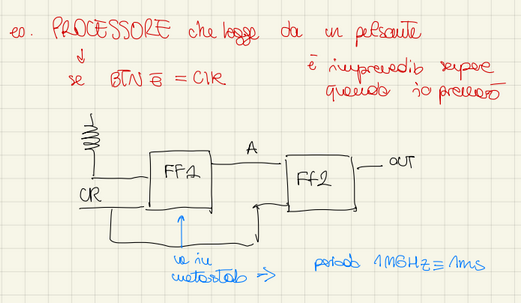 es. PROCESSORE che legge da un pulsante
è imprevedib sapere
se BTN È = Clk
quando io premerò
A
FF1
FF2
OUT
CK
va in
metastab → periodo 1MGHz ≡ 1ms